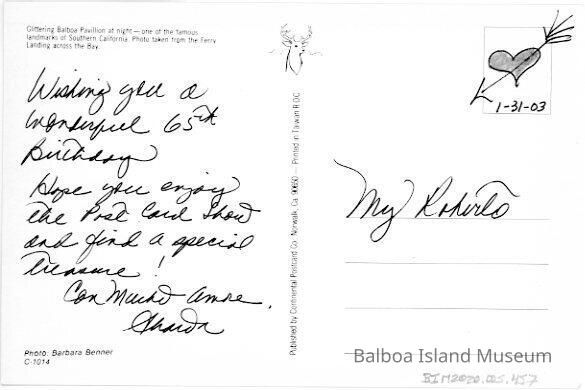 Glittering Balboa Pavillion at night — one of the famous
landmarks of Southern California. Photo taken from the Ferry
Landing across the Bay.
Wishing you a
Wonderful 65th
Birthday
Hope you enjoy
the Post Card Show
and find a special
treasure!
Con Mucho Amore,
Photo: Barbara Benner
C-1014
Published by Continental Postcard Co. Norwalk, Ca. 90650 — Printed in Taiwan R.O.C.
1-31-03
My Roberto
Balboa Island Museum
BIM2020.005.457